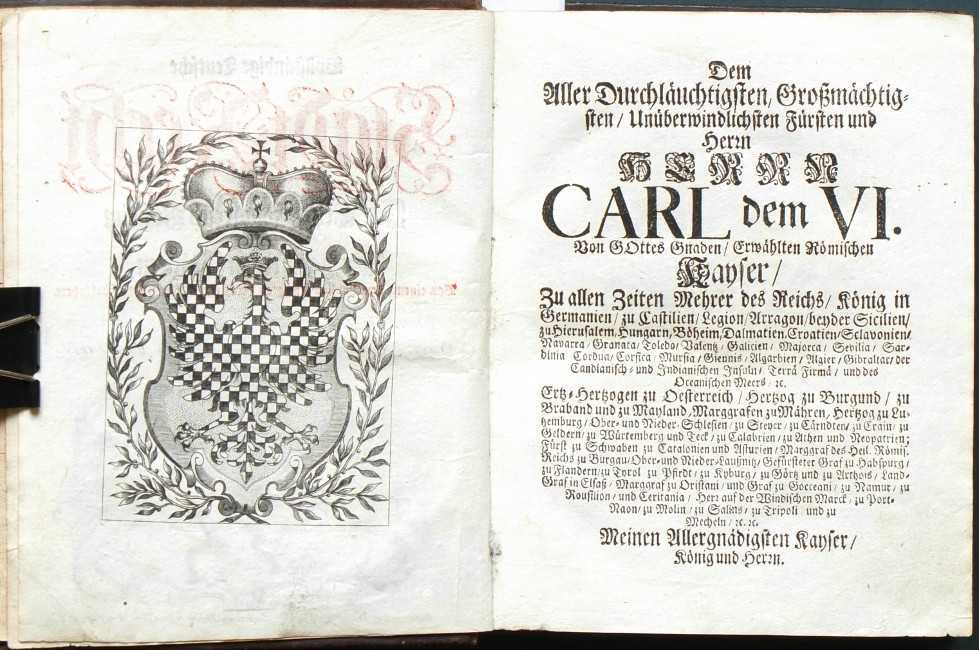 Dem
Aller Durchläuchtigsten, Großmächtig-
sten / Unüberwindlichsten Fürsten und
Herrn
HERRN
CARL dem VI.
Von GOttes Gnaden / Erwählten Römischen
Kayser /
Zu allen Zeiten Mehrer des Reichs / König in
Germanien / zu Castilien / Legion / Arragon / beyder Sicilien /
zu Hierusalem, Hungarn, Böheim, Dalmatien, Croatien, Sclavonien,
Navarra, Granata, Toledo, Valentz, Galicien, Majorca, Sevilia, Sar-
dinia, Cordua, Corsica, Mursia, Giennis, Algarbien, Algier, Gibraltar, der
Candianisch- und Indianischen Insuln, Terrâ Firmâ, und des
Oceanischen Meers, ꝛc.
Ertz-Hertzogen zu Oesterreich, Hertzog zu Burgund, zu
Braband und zu Mayland, Marggrafen zu Mähren, Hertzog zu Lu-
tzemburg, Ober- und Nieder-Schlesien, zu Steyer, zu Cärndten, zu Crain, zu
Geldern, zu Würtemberg und Teck, zu Calabrien, zu Athen und Neopatrien;
Fürst zu Schwaben zu Catalonien und Asturien, Marggraf des Heil. Römis.
Reichs zu Burgau, Ober- und Nieder-Laußnitz, Gefürsteter Graf zu Habspurg,
zu Flandern, zu Tyrol, zu Pfirdt, zu Kyburg, zu Görtz und zu Arthois, Land-
Graf in Elsaß, Marggraf zu Oristani, und Graf zu Gocceani, zu Namur, zu
Roussilion, und Ceritania, Herr auf der Windischen Marck, zu Port-
Naon, zu Molin, zu Salins, zu Tripoli und zu
Mecheln, ꝛc. ꝛc.
Meinen Allergnädigsten Kayser /
König und Herrn.